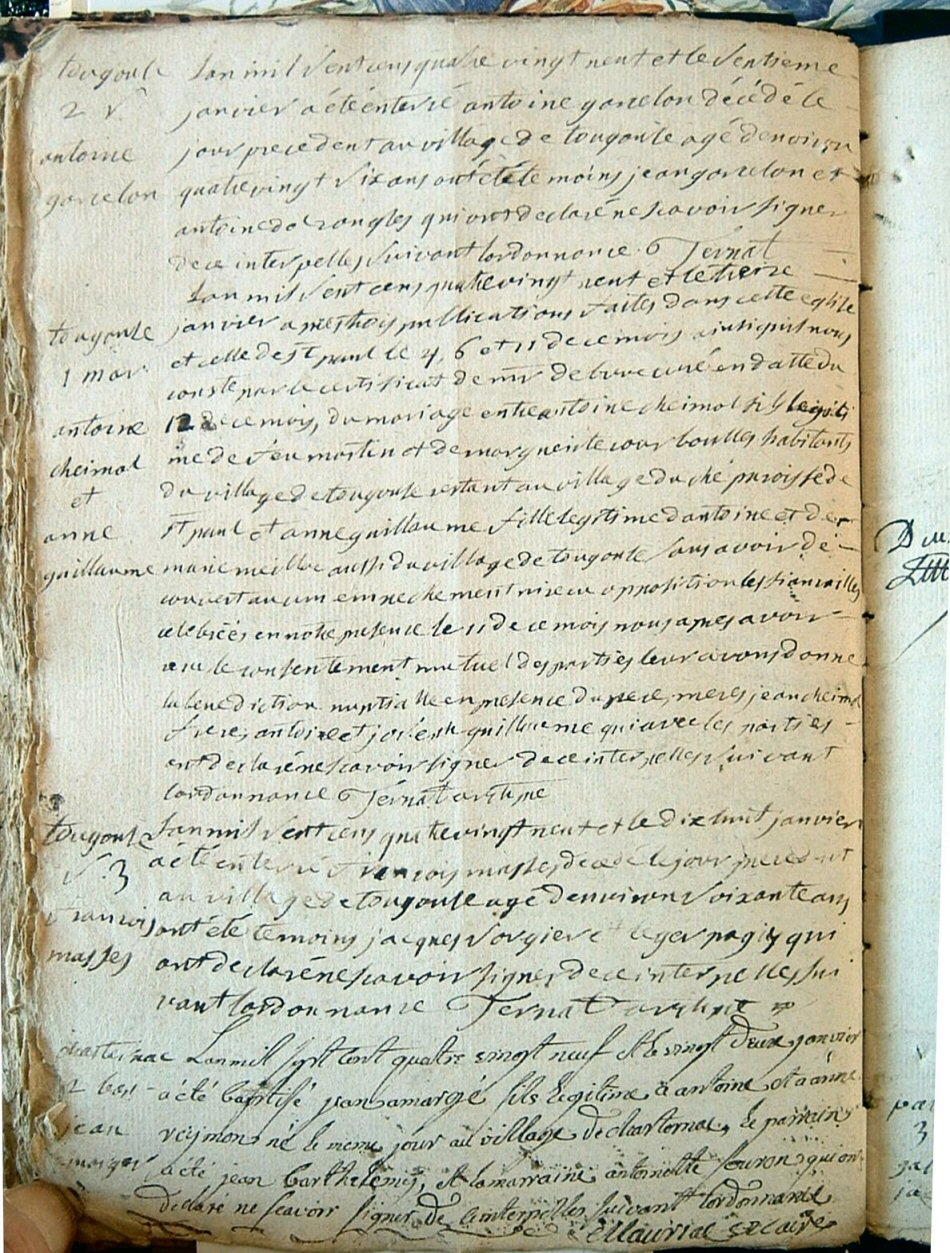 tougouse
2 s
antoine
gorcelon
Lan mil sent cens quatre vingt neut et le sentieme
janvier a été enterré antoine gorcelon décédé le
jour precedent au village de tougouse agé denviron
quatre vingt six ans ont été temoins jean gorcelon et
antoine qui ont declaré ne scavoir signer
de ce interpelles suivant lordonnance Ternat
tougouse
1 mar
antoine
cheimol
et
anne
guillaume
Lan mil sent cens quatre vingt neut et le treize
janvier apres trois publications faites dans cette eglise
et celle de st paul le 4, 6 et 11 de ce mois ainsi quil nous
conste par le certificat de mr curé en datte du
12 de ce mois, du mariage entre antoine cheimol fils legiti
me de feu martin et de marguerite habitants
du village de tougouse restant au village du ché paroisse de
st paul et anne guillaume fille legitime d antoine et de
marie aussi du village de tougouse sans avoir dé
couvert aucun empechement ni reçu opposition les fiancailles
celebrées en notre presence le 11 de ce mois nous apres avoir
recu le consentement mutuel des parties leur avons donne
la benediction nuptialle en presence du pere, meres jean cheimol
frere, antoine et joseph guillaume qui avec les parties
ont declaré ne scavoir signer de ce interpelles suivant
lordonnance Ternat archipre
tougouse
s. 3
francois
masses
Lan mil sent cens quatre vingt neut et le dix huit janvier
a été enterré francois masses decede le jour precedent
au village de tougouse agé denviron soixante ans
ont été temoins jacques et leger pagis qui
ont declaré ne scavoir signer de ce interpelles sui
vant lordonnance Ternat archipt
chasternac
2 bas
jean
amargé
Lan mill sept cent quatre vingt neuf et le vingt deux janvier
a été baptisé jean amargé fils legitime a antoine et a anne
reymond né le meme jour au village de chasternac, le parrain
a été jean barthelemy, et la marraine antoinette qui ont
declaré ne scavoir signer de ce interpelles suivant lordonnance
Mauriac vicaire